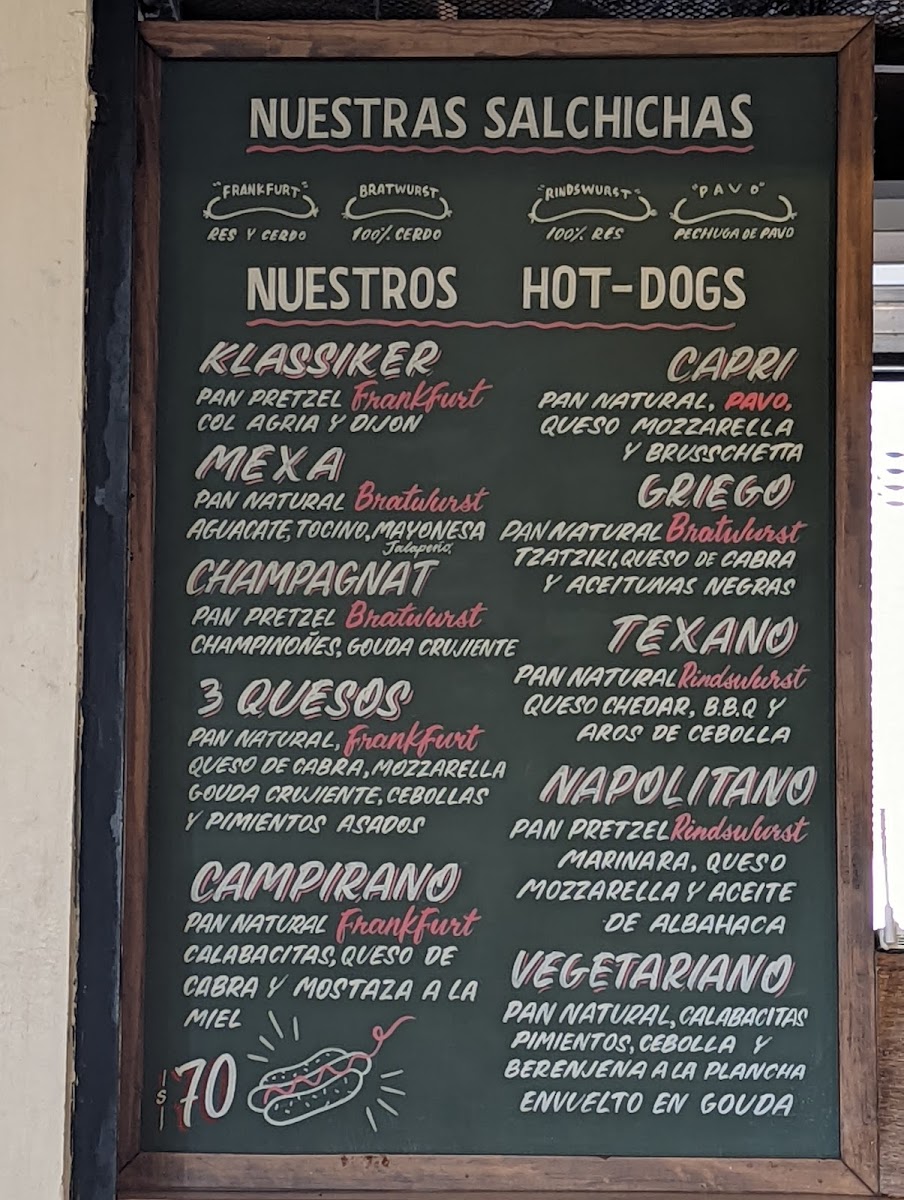 NUESTRAS SALCHICHAS
"FRANKFURT"
RES Y CERDO
BRATWURST
100% CERDO
"RINDSWURST"
100% RES
"PAVO"
PECHUGA DE PAVO
NUESTROS HOT-DOGS
KLASSIKER
PAN PRETZEL Frankfurt
COL AGRIA Y DIJON
MEXA
PAN NATURAL Bratwurst
AGUACATE, TOCINO, MAYONESA
Jalapeño,
CHAMPAGNAT
PAN PRETZEL Bratwurst
CHAMPIÑOÑES, GOUDA CRUJIENTE
3 QUESOS
PAN NATURAL, Frankfurt
QUESO DE CABRA, MOZZARELLA
GOUDA CRUJIENTE, CEBOLLAS
Y PIMIENTOS ASADOS
CAMPIRANO
PAN NATURAL Frankfurt
CALABACITAS, QUESO DE
CABRA Y MOSTAZA A LA
MIEL
$70
CAPRI
PAN NATURAL, PAVO,
QUESO MOZZARELLA
Y BRUSSCHETTA
GRIEGO
PAN NATURAL Bratwurst
TZATZIKI, QUESO DE CABRA
Y ACEITUNAS NEGRAS
TEXANO
PAN NATURAL Rindswurst
QUESO CHEDAR, B.B.Q Y
AROS DE CEBOLLA
NAPOLITANO
PAN PRETZEL Rindswurst
MARINARA, QUESO
MOZZARELLA Y ACEITE
DE ALBAHACA
VEGETARIANO
PAN NATURAL, CALABACITAS
PIMIENTOS, CEBOLLA Y
BERENJENA A LA PLANCHA
ENVUELTO EN GOUDA